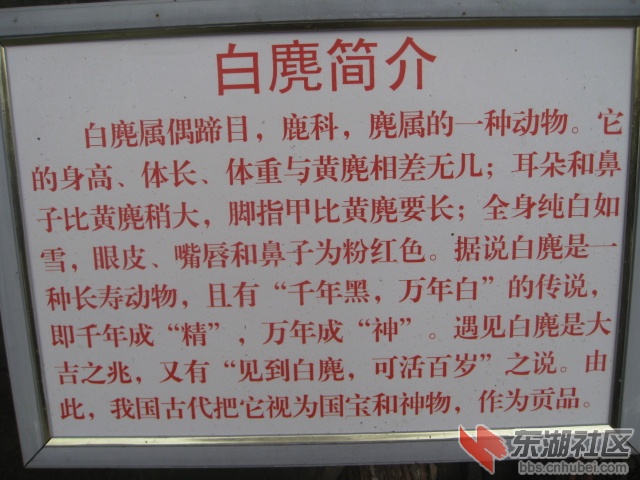 白麂简介
白麂属偶蹄目，鹿科，麂属的一种动物。它
的身高、体长、体重与黄麂相差无几；耳朵和鼻
子比黄麂稍大，脚指甲比黄麂要长；全身纯白如
雪，眼皮、嘴唇和鼻子为粉红色。据说白麂是一
种长寿动物，且有“千年黑，万年白”的传说，
即千年成“精”，万年成“神”。遇见白麂是大
吉之兆，又有“见到白麂，可活百岁”之说。由
此，我国古代把它视为国宝和神物，作为贡品。
东湖社区
bbs.cnhubei.com